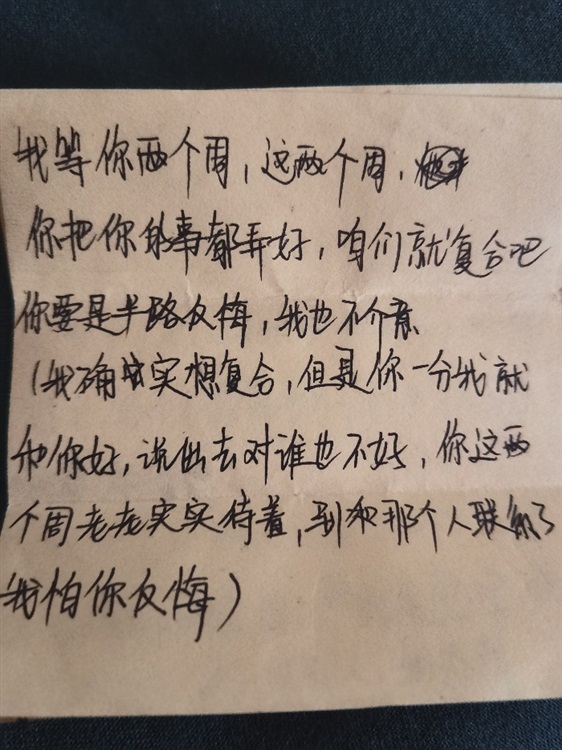 我等你两个周，这两个周，
你把你的事都弄好，咱们就复合吧
你要是半路反悔，我也不介意
（我确实想复合，但是你一分我就
和你好，说出去对谁也不好，你这两
个周老老实实待着，别和那个人联系了
我怕你反悔）